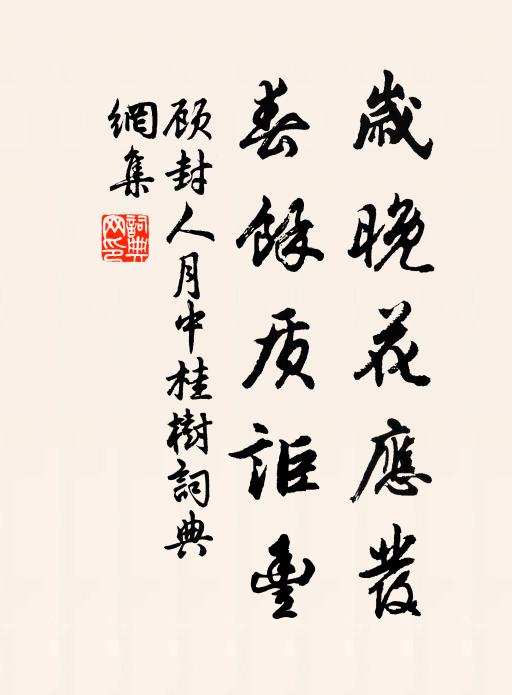 歲晚花應發
春餘质詎豐
顾封人月中桂樹詞典
網集
詞典
网印